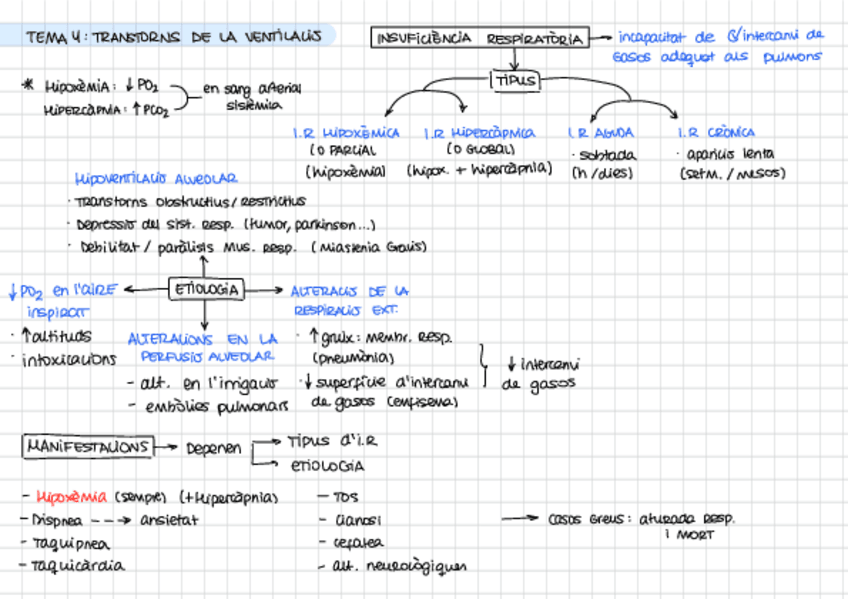 TEMA 4: TRANSTORNS DE LA VENTILACIÓ
INSUFICIÈNCIA RESPIRATÒRIA → incapacitat de d'intercanvi de
gasos adequat als pulmons
TIPUS
* HIPOXÈMIA: ↓ PO₂
HIPERCÀPNIA: ↑ PCO₂
en sang arterial
sistèmica
I.R HIPOXÈMICA
(O PARCIAL
(hipoxèmia)
I.R HIPERCÀPNICA
(O GLOBAL)
(hipox. + hipercàpnia)
I.R AGUDA
· sobtada
(h/dies)
I.R CRÒNICA
· aparició lenta
(setm. / mesos)
HIPOVENTILACIÓ ALVEOLAR
· Transtorns obstructius/restrictius
· Depressió del sist. resp. (tumor, parkinson...)
· Debilitat / paràlisis mus. resp. (Miastenia Gravis)
ETIOLOGIA
↓ PO₂ en l'aire
inspirat
· ↑ altituds
· intoxicacions
ALTERACIONS EN LA
PERFUSIÓ ALVEOLAR
- alt. en l'irrigació
- embòlies pulmonars
ALTERACIÓ DE LA
RESPIRACIÓ EXT.
· ↑ gruix: membr. resp.
(pneumònia)
· ↓ superfície d'intercanvi
de gasos (emfisema)
↓ intercanvi
de gasos
MANIFESTACIONS → Depenen
→ Tipus d'I.R
→ ETIOLOGIA
- Hipoxèmia (sempre) (+Hipercàpnia)
- Dispnea ---→ ansietat
- Taquipnea
- Taquicàrdia
- TOS
- cianosi
- cefalea
- alt. neurològiques
→ casos greus: aturada resp.
i MORT